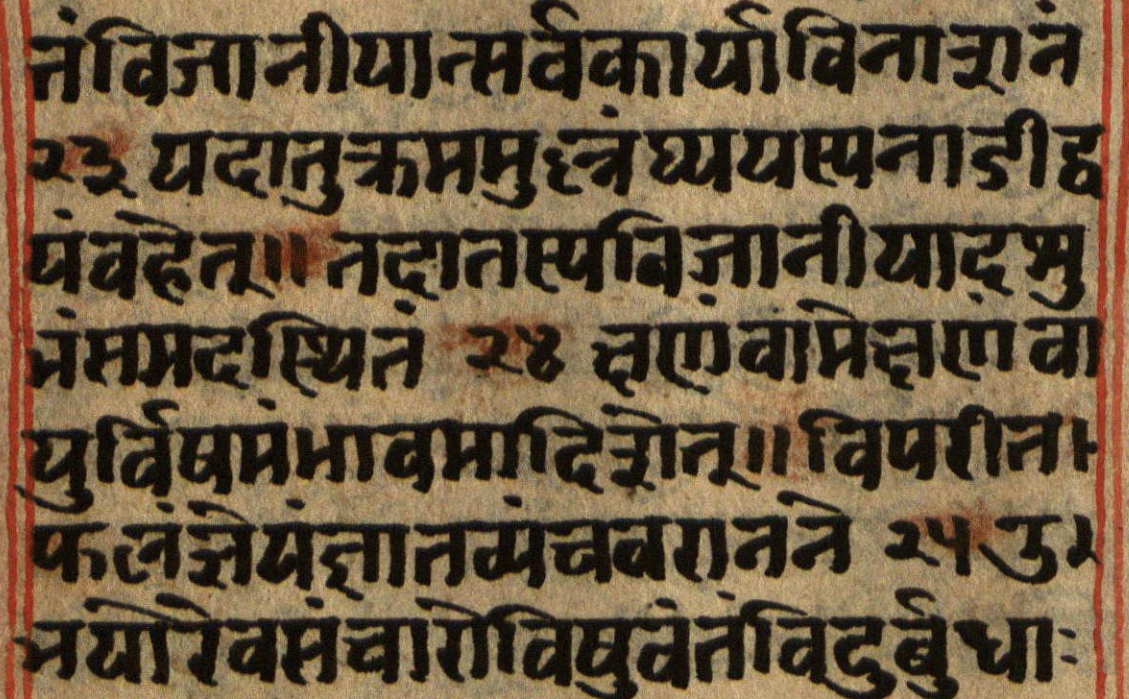 तंविजानीयात्सर्वकार्याविनाशनं
२३ यदातुक्रममुल्लंघ्ययस्यनाडीद्व
यंवहेत्॥ तदातस्यविजानीयाद्अशु
भंसमदस्थितं २४ क्षणंवामेक्षणंवा
युर्विषमंभावमादिशेत्॥ विपरीतं
फलंज्ञेयंज्ञातव्यंचवरानने २५ उ२
भयोरेवसंचारोविषुवंतंविदुर्बुधाः